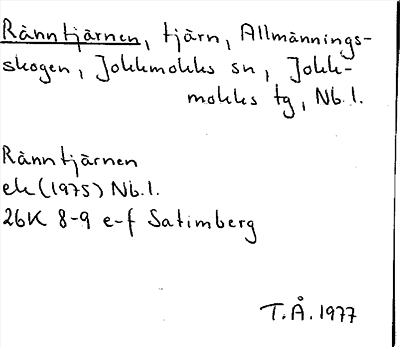 Rånntjärnen, tjärn, Allmännings-
skogen, Jokkmokks sn, Jokk-
mokks tg, Nb.l.
Rånntjärnen
ek (1975) Nb.l.
26K 8-9 e-f Satimberg
T.Å. 1977